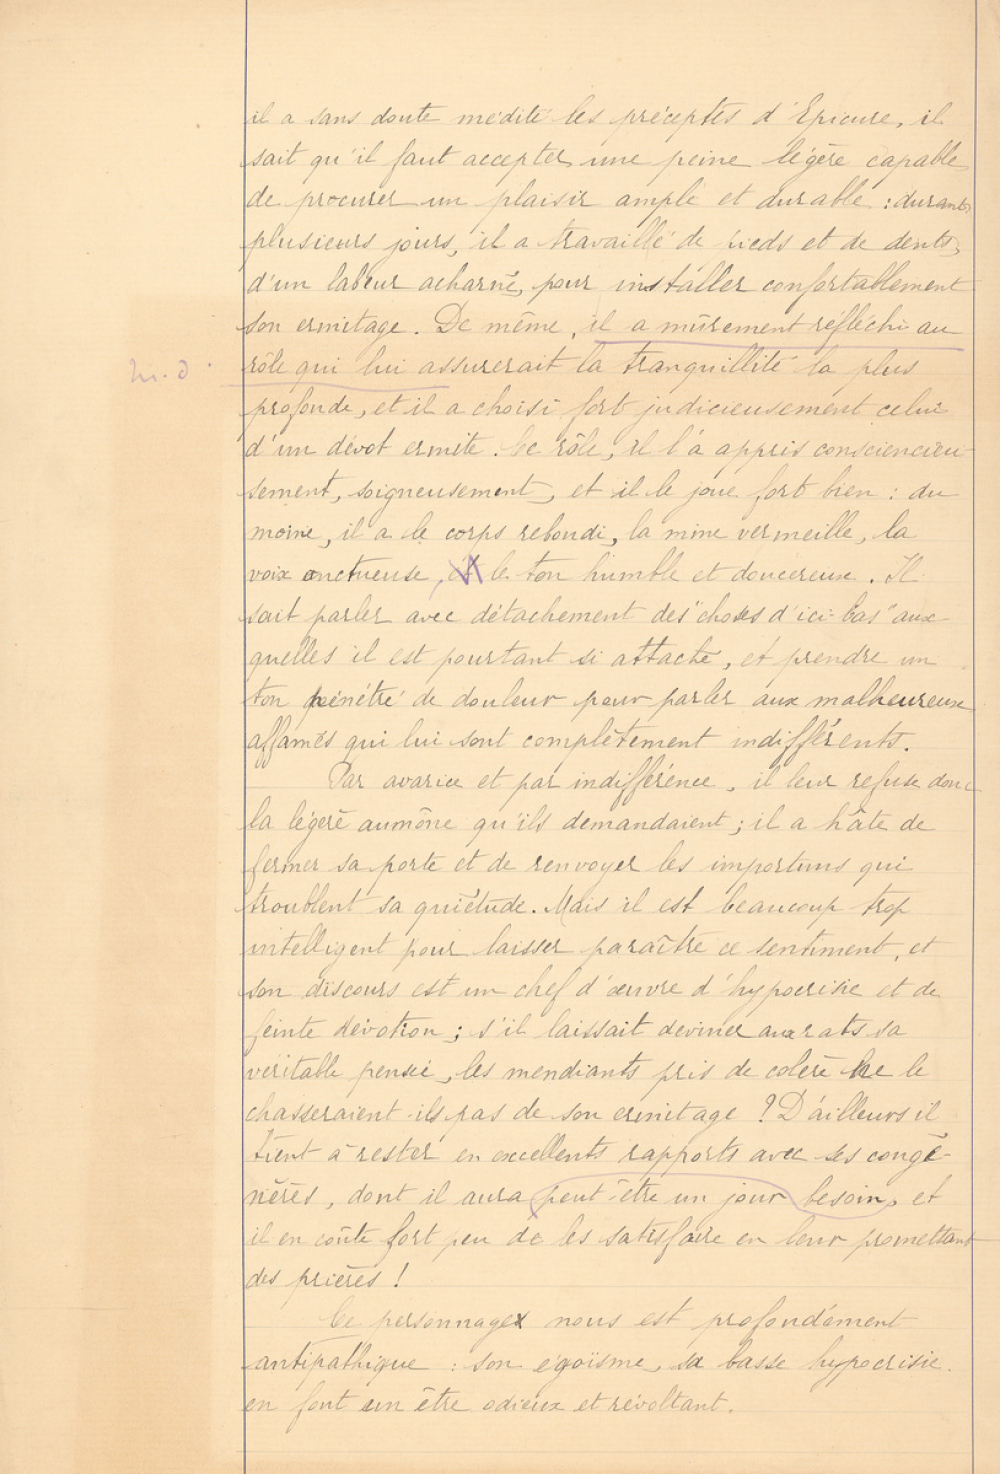 il a sans doute médité les préceptes d'Epicure, il
sait qu'il faut accepter une peine légère capable
de procurer un plaisir ample et durable : durant
plusieurs jours, il a travaillé de pieds et de dents,
d'un labeur acharné, pour installer confortablement
son ermitage. De même, il a mûrement réfléchi au
m. d.
rôle qui lui assurerait la tranquillité la plus
profonde, et il a choisi fort judicieusement celui
d'un dévot ermite. Ce rôle, il l'a appris consciencieu
sement, soigneusement, et il le joue fort bien : du
moine, il a le corps rebondi, la mine vermeille, la
voix onctueuse, et le ton humble et doucereux. Il
sait parler avec détachement des "choses d'ici-bas" aux
quelles il est pourtant si attaché, et prendre un
ton pénétré de douleur pour parler aux malheureux
affamés qui lui sont complètement indifférents.
Par avarice et par indifférence, il leur refuse donc
la légère aumône qu'ils demandaient ; il a hâte de
fermer sa porte et de renvoyer les importuns qui
troublent sa quiétude. Mais il est beaucoup trop
intelligent pour laisser paraître ce sentiment, et
son discours est un chef d'œuvre d'hypocrisie et de
feinte dévotion ; s'il laissait deviner aux rats sa
véritable pensée, les mendiants pris de colère ne le
chasseraient-ils pas de son ermitage ? D'ailleurs il
tient à rester en excellents rapports avec ses congé-
nères, dont il aura peut-être un jour besoin, et
il en coûte fort peu de les satisfaire en leur promettant
des prières !
Ce personnage nous est profondément
antipathique : son égoïsme, sa basse hypocrisie
en font un être odieux et révoltant.